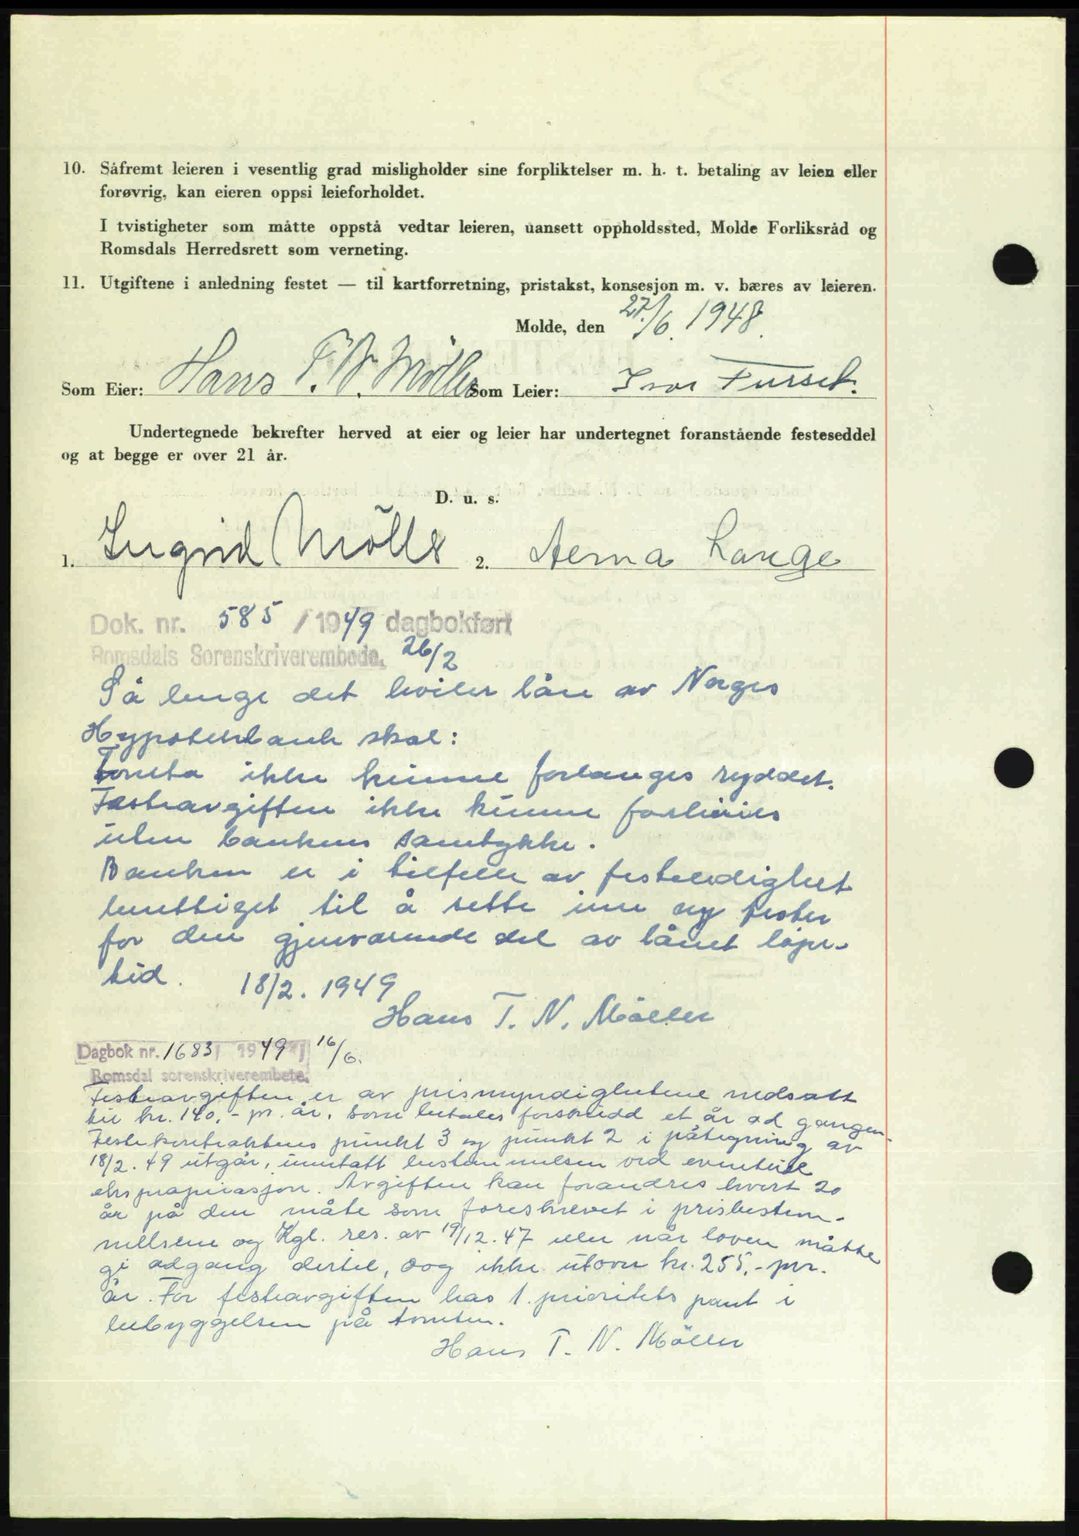 10. Såfremt leieren i vesentlig grad misligholder sine forpliktelser m. h. t. betaling av leien eller
forøvrig, kan eieren oppsi leieforholdet.
I tvistigheter som måtte oppstå vedtar leieren, uansett oppholdssted, Molde Forliksråd og
Romsdals Herredsrett som verneting.
11. Utgiftene i anledning festet — til kartforretning, pristakst, konsesjon m. v. bæres av leieren.
Molde, den 27/6. 1948.
Som Eier: Hans T. N. Møller Som Leier: Ivar Furset.
Undertegnede bekrefter herved at eier og leier har undertegnet foranstående festeseddel
og at begge er over 21 år.
D. u. s.
1. Ingrid Möller 2. Aerna Lange
Dok. nr. 585 / 1949 dagbokført
Romsdals Sorenskriverembede. 26/2
Så lenge det hviler lån av Norges
Hypotekbank skal:
Tomta ikke kunne forlanges ryddet.
Festeavgiften ikke kunne forhøies
uten bankens samtykke.
Banken er i tilfelle av festeledighet
berettiget til å sette inn ny fester
for den gjenværende del av lånet løpe-
tid. 18/2. 1949
Hans T. N. Möller
Dagbok nr. 1683 1949 16/6.
Romsdal sorenskriverembete.
Festeavgiften er av prismyndighetene nedsatt
til kr. 140,- pr. år, som betales forskudd et år ad gangen.
Festekontraktens punkt 3 og punkt 2 i påtegning av
18/2. 49 utgår, inntatt bestemmelsen ved eventuell
ekspropriasjon. Avgiften kan forandres hvert 20
år på den måte som foreskrevet i prisbestem-
mellsene og Kgl. res. av 19/12. 47 eller når loven måtte
gi adgang dertil, dog ikke utover kr. 255,- pr.
år. For festeavgiften has 1. prioritets pant i
bebyggelsen på tomten.
Hans T. N. Möller